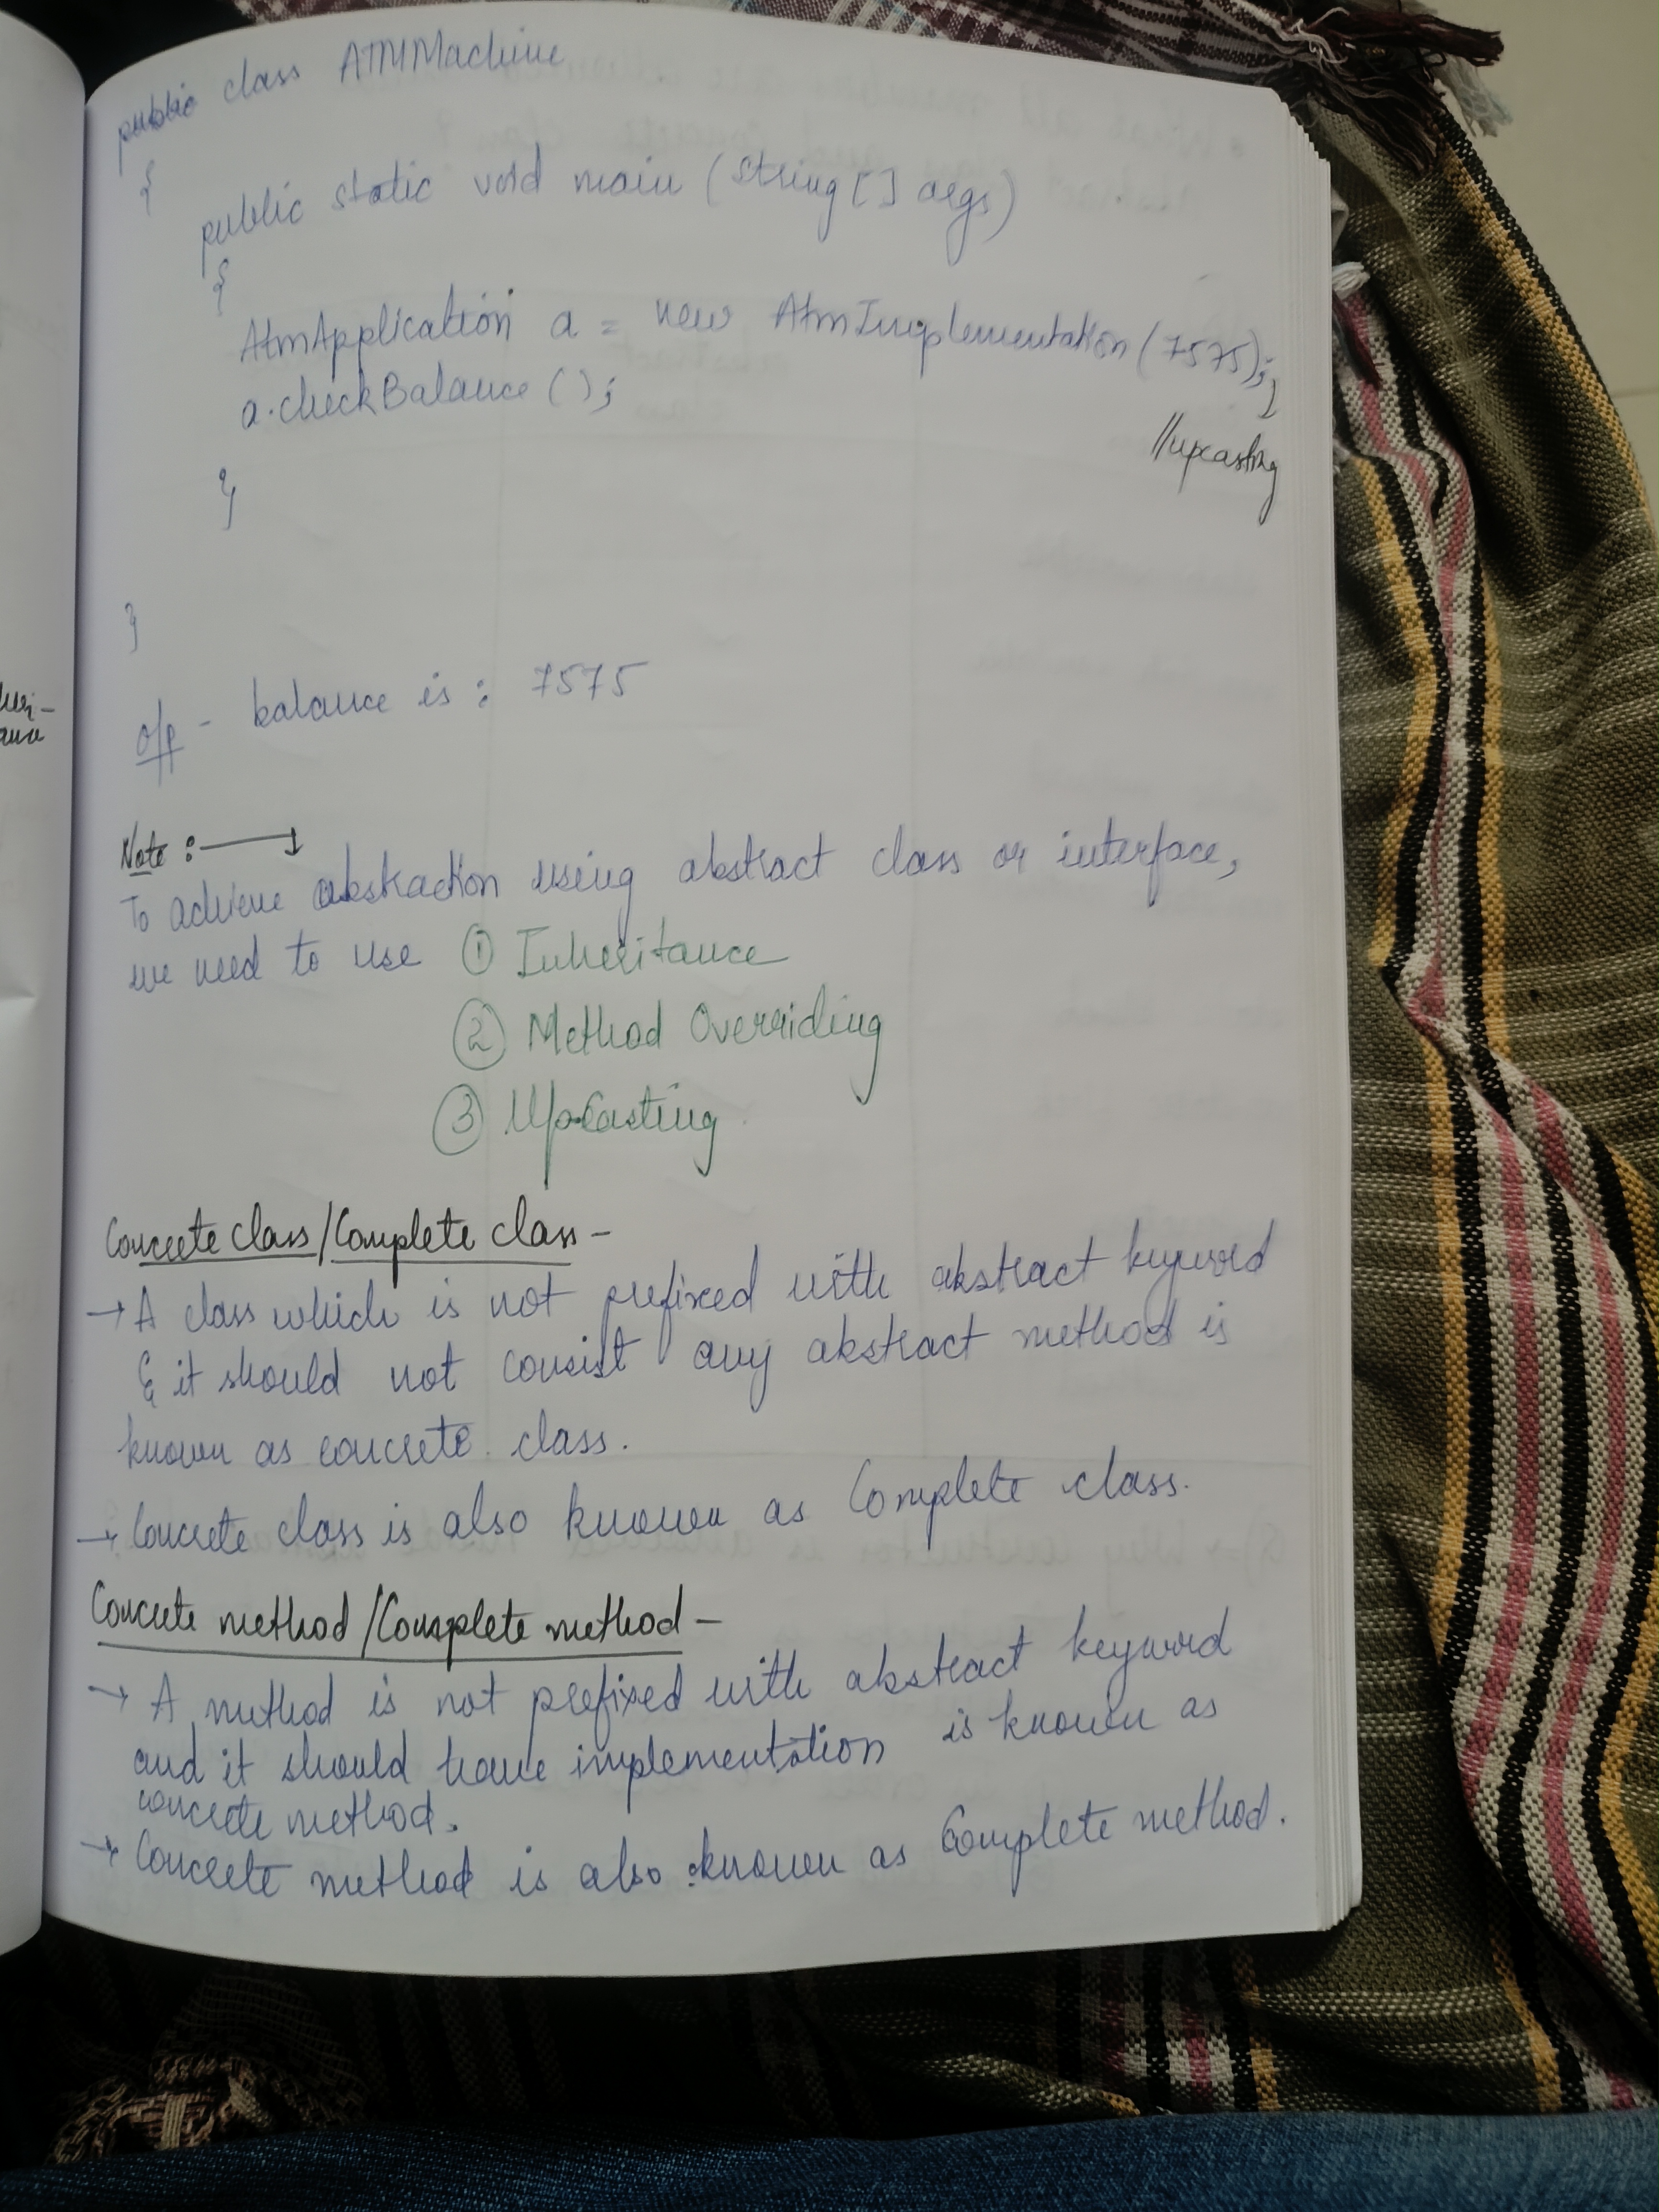 public class ATMMachine
{
public static void main (String [ ] args)
{
AtmApplication a = new AtmImplementation (7575);
a.checkBalance ( );
//upcasting
}
}
o/p - balance is : 7575
Note :→
To achieve abstraction using abstract class or interface,
we need to use ① Inheritance
② Method Overriding
③ Upcasting
Concrete class/Complete class -
→ A class which is not prefixed with abstract keyword
& it should not consist any abstract method is
known as concrete class.
→ Concrete class is also known as Complete class.
Concrete method/Complete method -
→ A method is not prefixed with abstract keyword
and it should have implementation is known as
concrete method.
→ Concrete method is also known as Complete method.